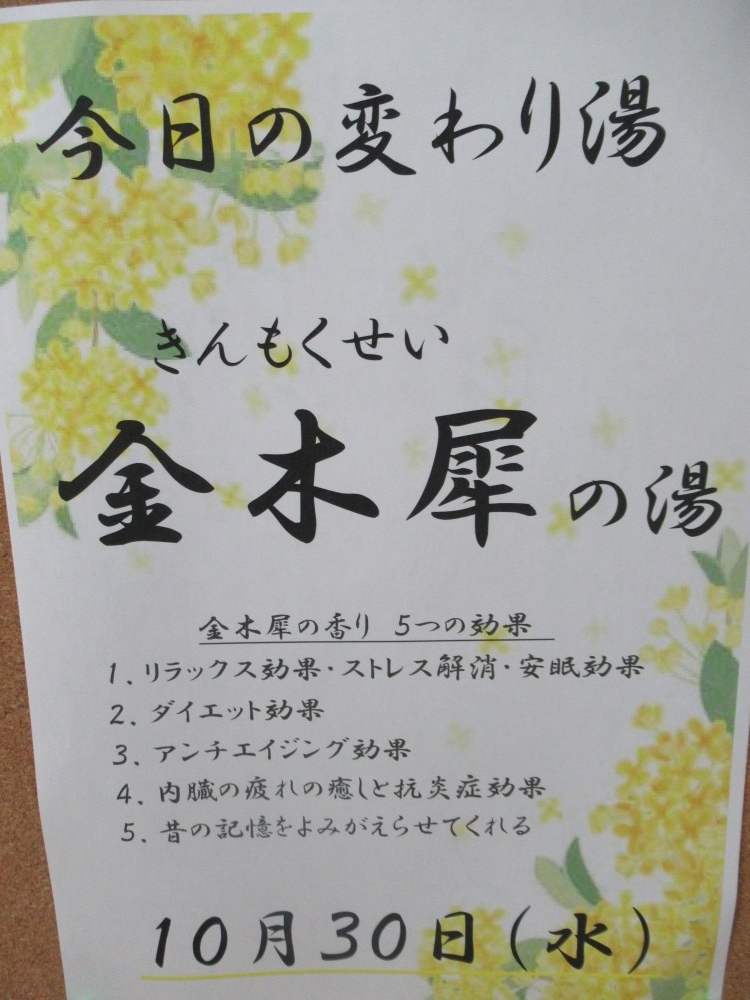 今日の変わり湯
きんもくせい
金木犀の湯
金木犀の香り 5つの効果
1. リラックス効果・ストレス解消・安眠効果
2. ダイエット効果
3. アンチエイジング効果
4. 内臓の疲れの癒しと抗炎症効果
5. 昔の記憶をよみがえらせてくれる
10月30日(水)